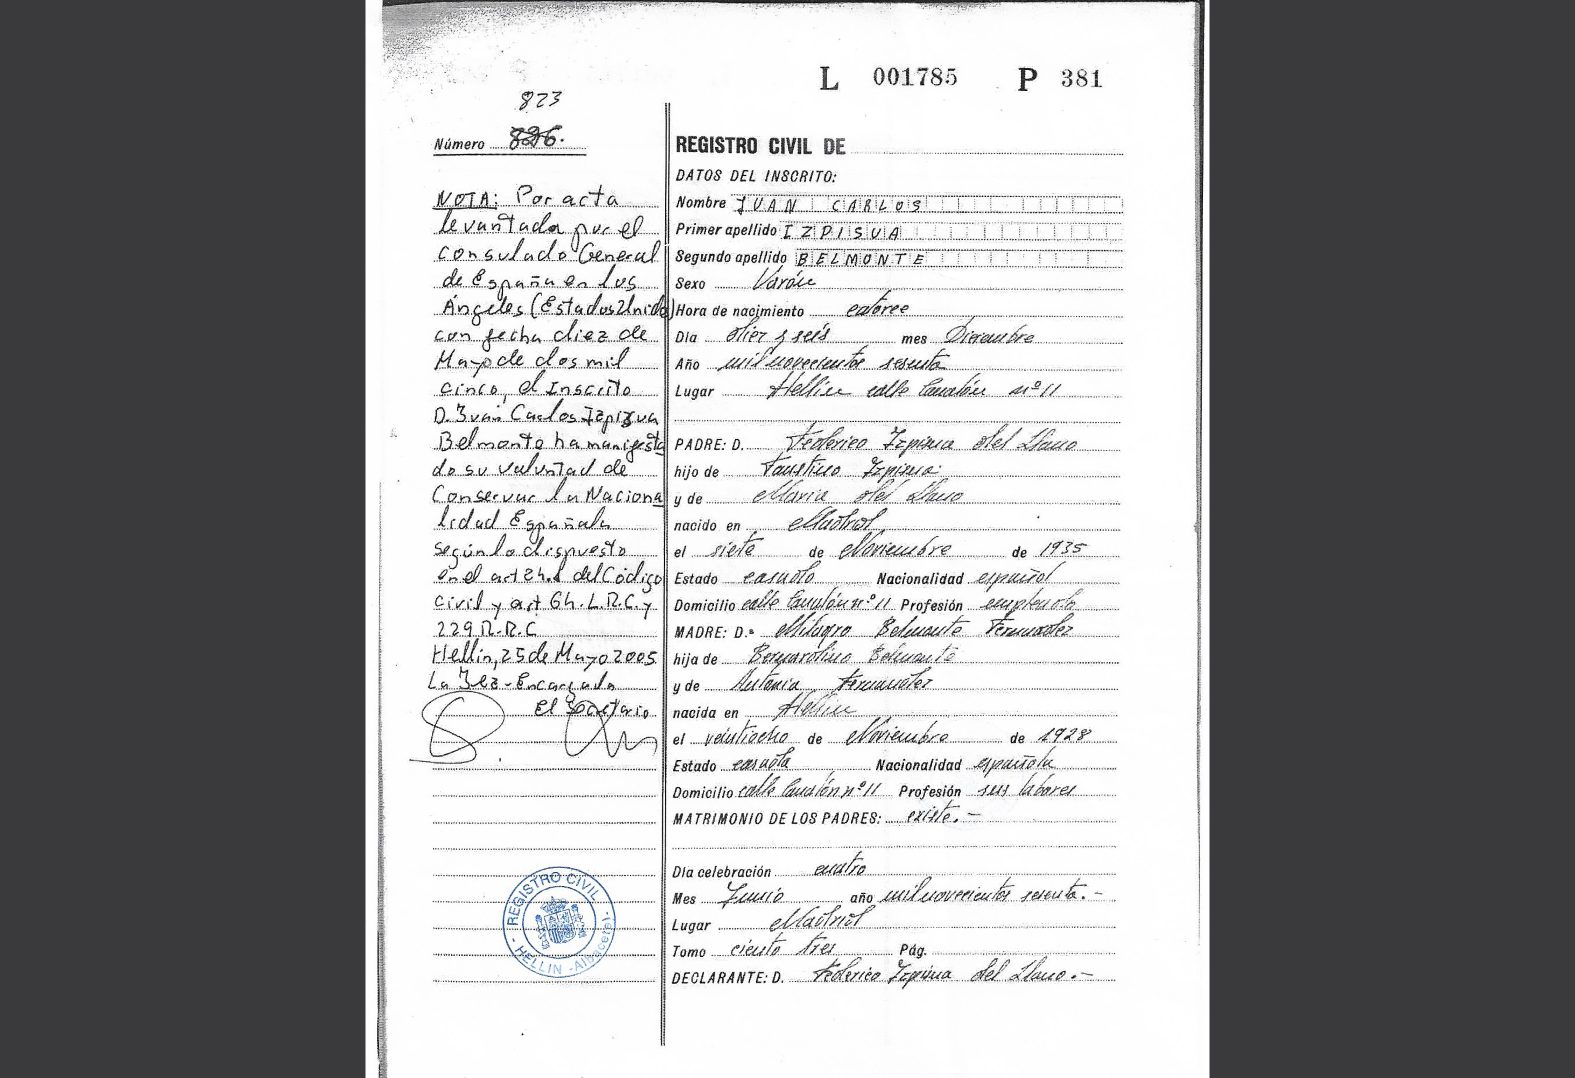 L 001785 P 381
823
Número 826.
NOTA: Por acta
levantada por el
consulado General
de España en los
Ángeles (Estados Unidos)
con fecha diez de
Mayo de dos mil
cinco, el Inscrito
D. Juan Carlos Izpizua
Belmonte ha manifesta
do su voluntad de
Conservar la Naciona
lidad Española
según lo dispuesto
en el art 24.1 del Código
Civil y art 64. L.R.C. y
229 R.R.C
Hellín, 25 de Mayo 2005
La Juez-Encargada
El Secretario
REGISTRO CIVIL
HELLIN -Albacete-
REGISTRO CIVIL DE
DATOS DEL INSCRITO:
Nombre JUAN CARLOS
Primer apellido IZPISUA
Segundo apellido BELMONTE
Sexo Varón
Hora de nacimiento catorce
Día diez y seis mes Diciembre
Año mil novecientos sesenta
Lugar Hellín calle nº 11
PADRE: D. Federico Izpisua del Llano
hijo de Faustino Izpisua
y de Maria del Llano
nacido en Madrid
el siete de Noviembre de 1935
Estado casado Nacionalidad español
Domicilio calle nº 11 Profesión empleado
MADRE: D.ª Milagro Belmonte Fernandez
hija de Bernardino Belmonte
y de Antonia Fernandez
nacida en Hellín
el veintiocho de Noviembre de 1928
Estado casada Nacionalidad española
Domicilio calle nº 11 Profesión sus labores
MATRIMONIO DE LOS PADRES: existe.-
Día celebración cuatro
Mes Junio año mil novecientos sesenta.-
Lugar Madrid
Tomo ciento tres Pág.
DECLARANTE: D. Federico Izpisua del Llano.-